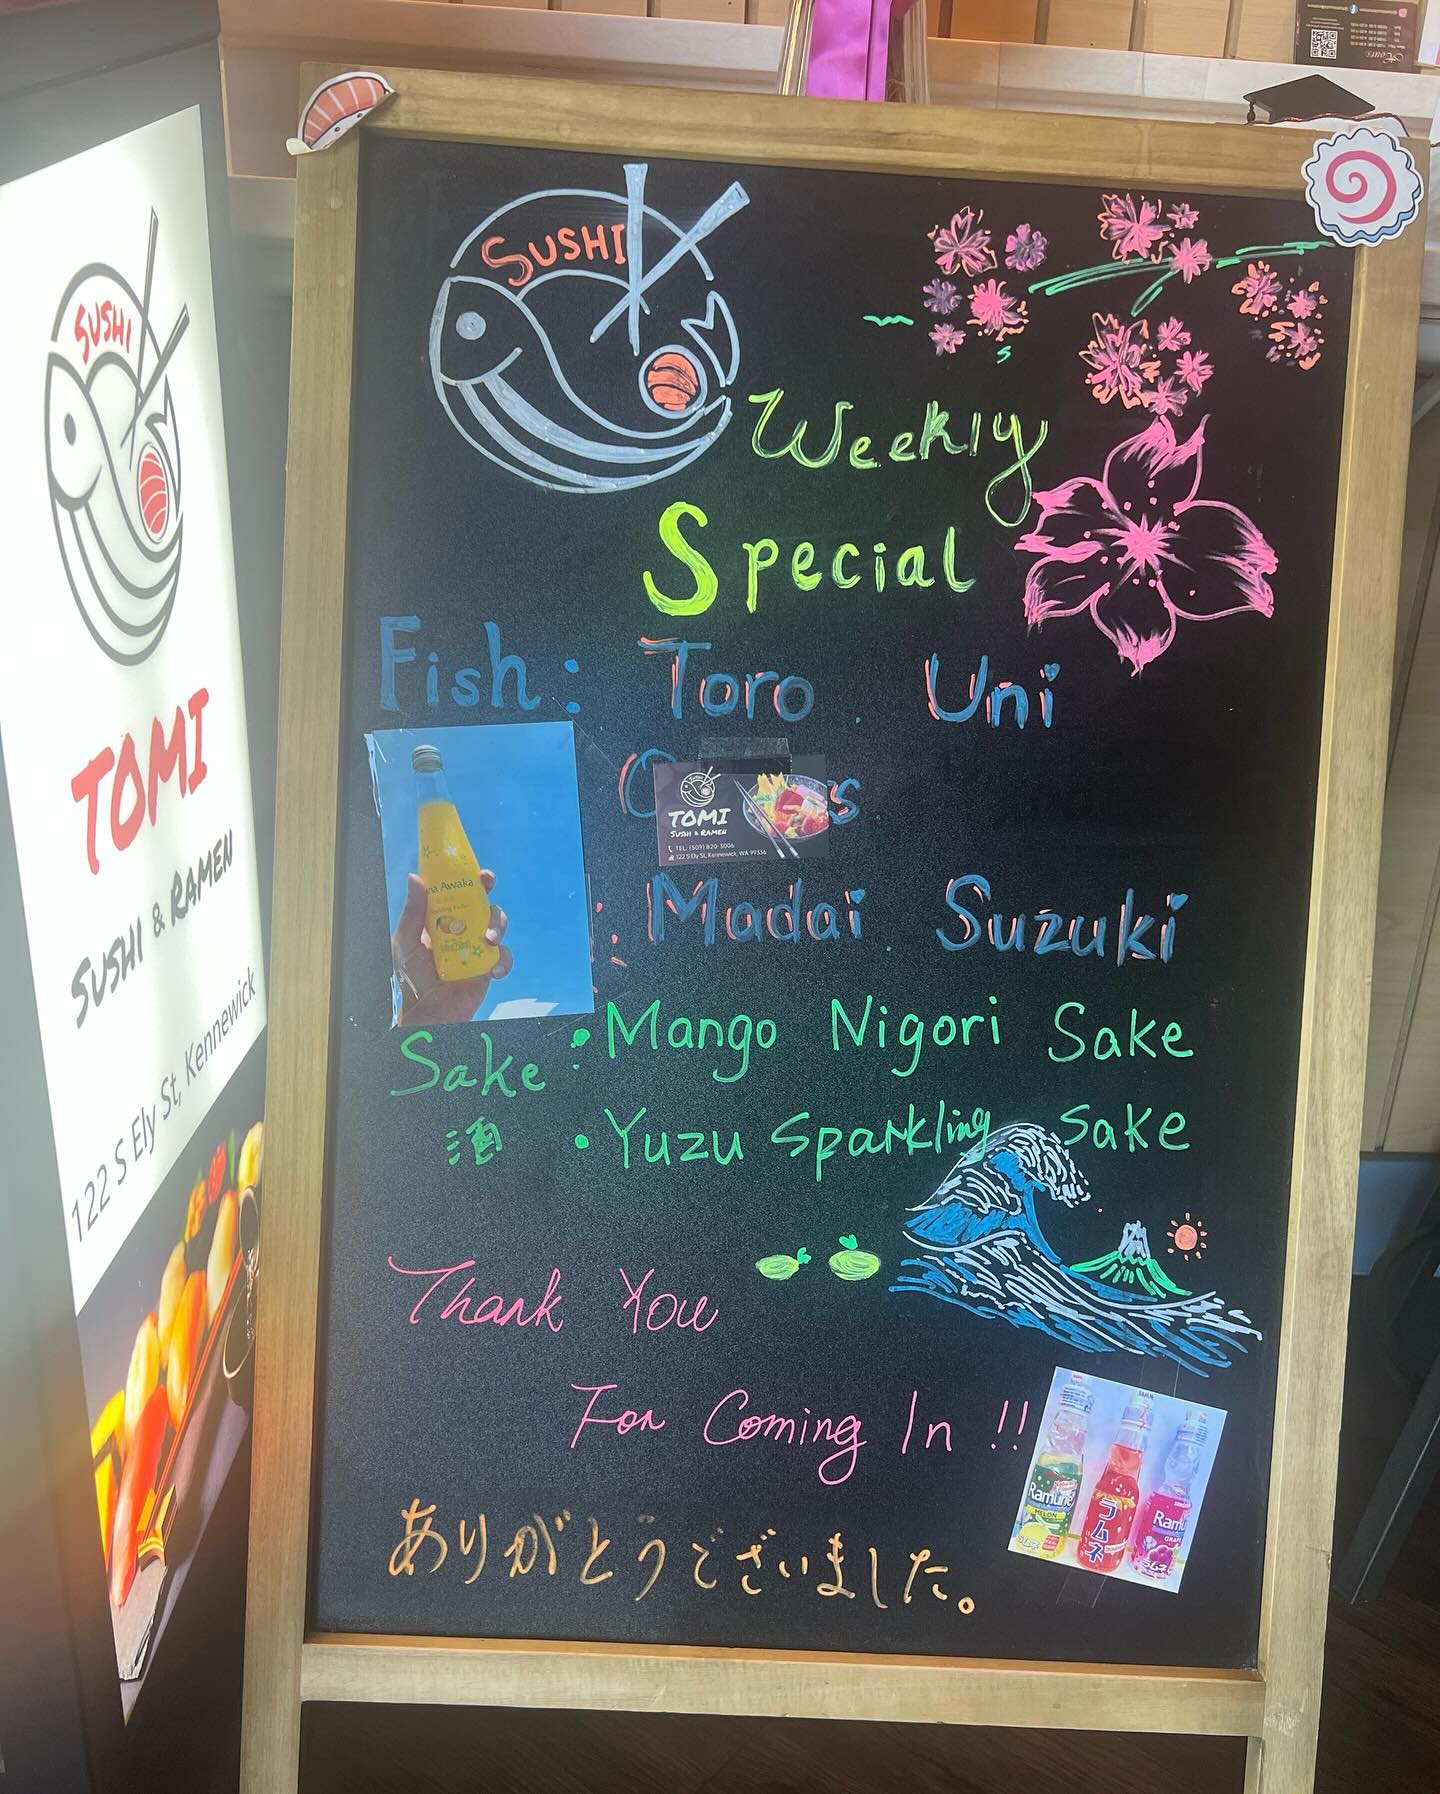 SUSHI
TOMI
SUSHI & RAMEN
122 S Ely St, Kennewick
SUSHI
Weekly
Special
Fish : Toro . Uni
TOMI
SUSHI & RAMEN
TEL: (509) 820-3006
122 S Ely St, Kennewick, WA 99336
: Madai . Suzuki
Awaka
Sake : • Mango Nigori Sake
酒 • Yuzu Sparkling Sake
Thank You
For Coming In !!
ありがどうございました。
Ramune
MELON
ラムネ
Ramu
GRAPE
Hours